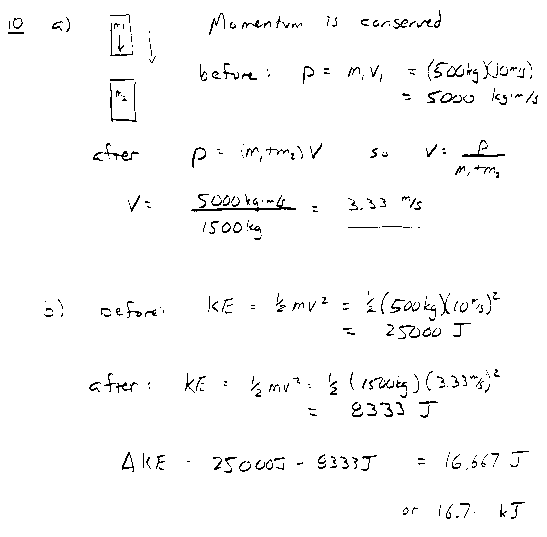 10 a) m₁ Momentum is conserved
m₂
before: p = m₁v₁ = (500kg)(10m/s)
= 5000 kg·m/s
after p = (m₁+m₂)V so V = p/(m₁+m₂)
V = 5000 kg·m/s / 1500 kg = 3.33 m/s
b) before: KE = ½mv² = ½(500kg)(10m/s)²
= 25000 J
after: KE = ½mv² = ½(1500kg)(3.33m/s)²
= 8333 J
ΔKE = 25000J - 8333J = 16,667 J
or 16.7 kJ